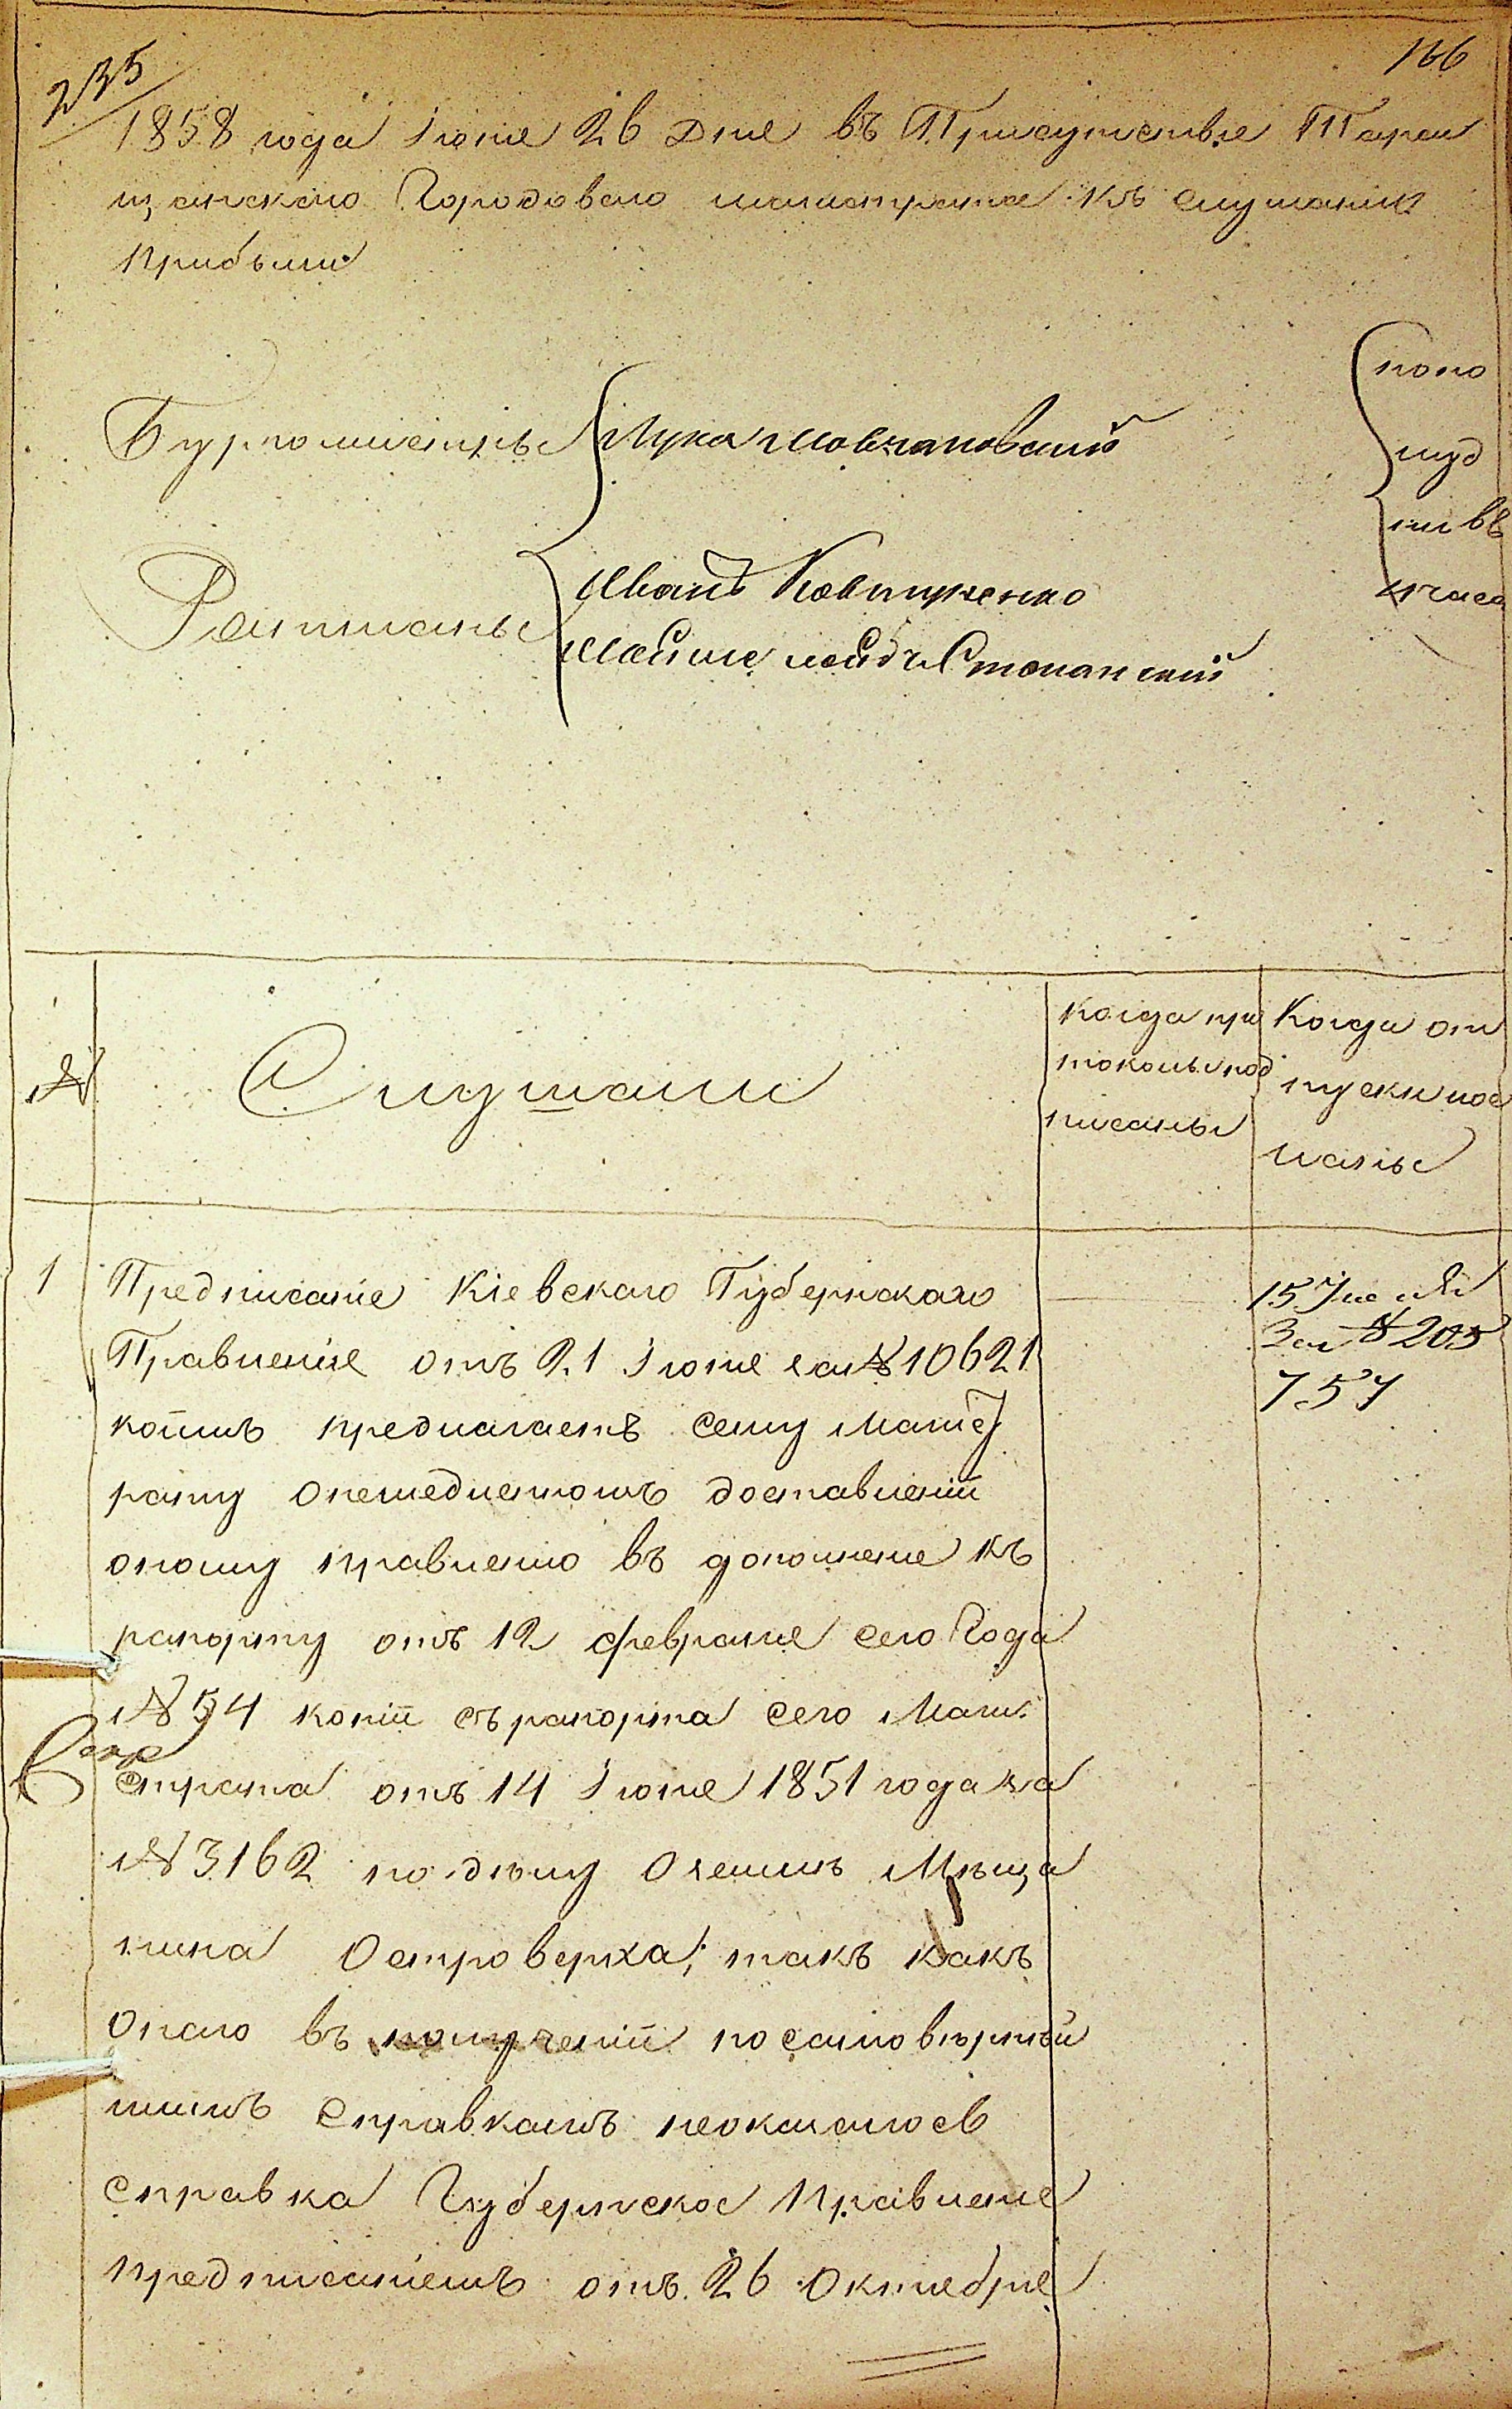 235
166
1858 года Іюня 26 Дня въ Присутствіе Тара
щанского Городового магистрата къ слушанию
прибыли
Бургомистръ Лука Мовчановский
Ратманы
Иванъ Ковтуненко
полу
нип въ
часа
№
Слушали
Когда про
токолы под
писаны
Когда от
пуски пос
ланы
1
Предписаніе Кіевского Губернского
Правленія отъ 21 Іюня за № 10621
коимъ предлагаетъ сему Магис
рату о немедленномъ доставленіи
оному правленію въ дополненіе къ
рапорту отъ 12 февраля сего Года
№ 54 копіи съ рапорта сего Маги
страта отъ 14 Іюня 1851 года за
№ 3162 по делу о Мѣща
нина Островерха; такъ какъ
оного въ полученіи по самовѣрнѣй
шимъ справкамъ неоказалось
Справка Губернское Правленіе
предписаніемъ отъ 26 Октября
15
За № 205
757